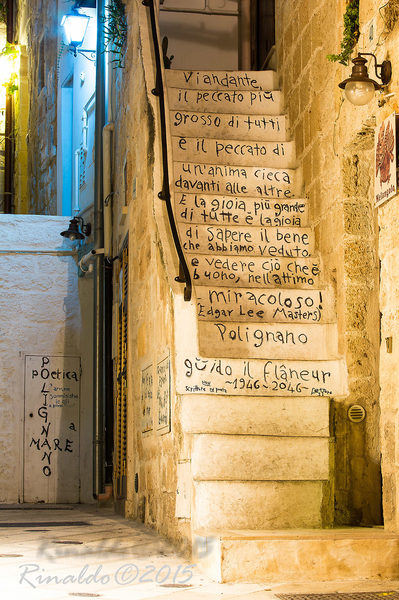 Viandante
il peccato più
grosso di tutti
è il peccato di
un'anima cieca
davanti alle altre
E la gioia più grande
di tutte è la gioia
di sapere il bene
che abbiamo veduto
e vedere ciò che è
buono, nell'attimo
miracoloso!
(Edgar Lee Masters)
Polignano
guido il flâneur
~1946~2046~
POLIGNANO
Poetica
a
MARE
Rinaldo©2015